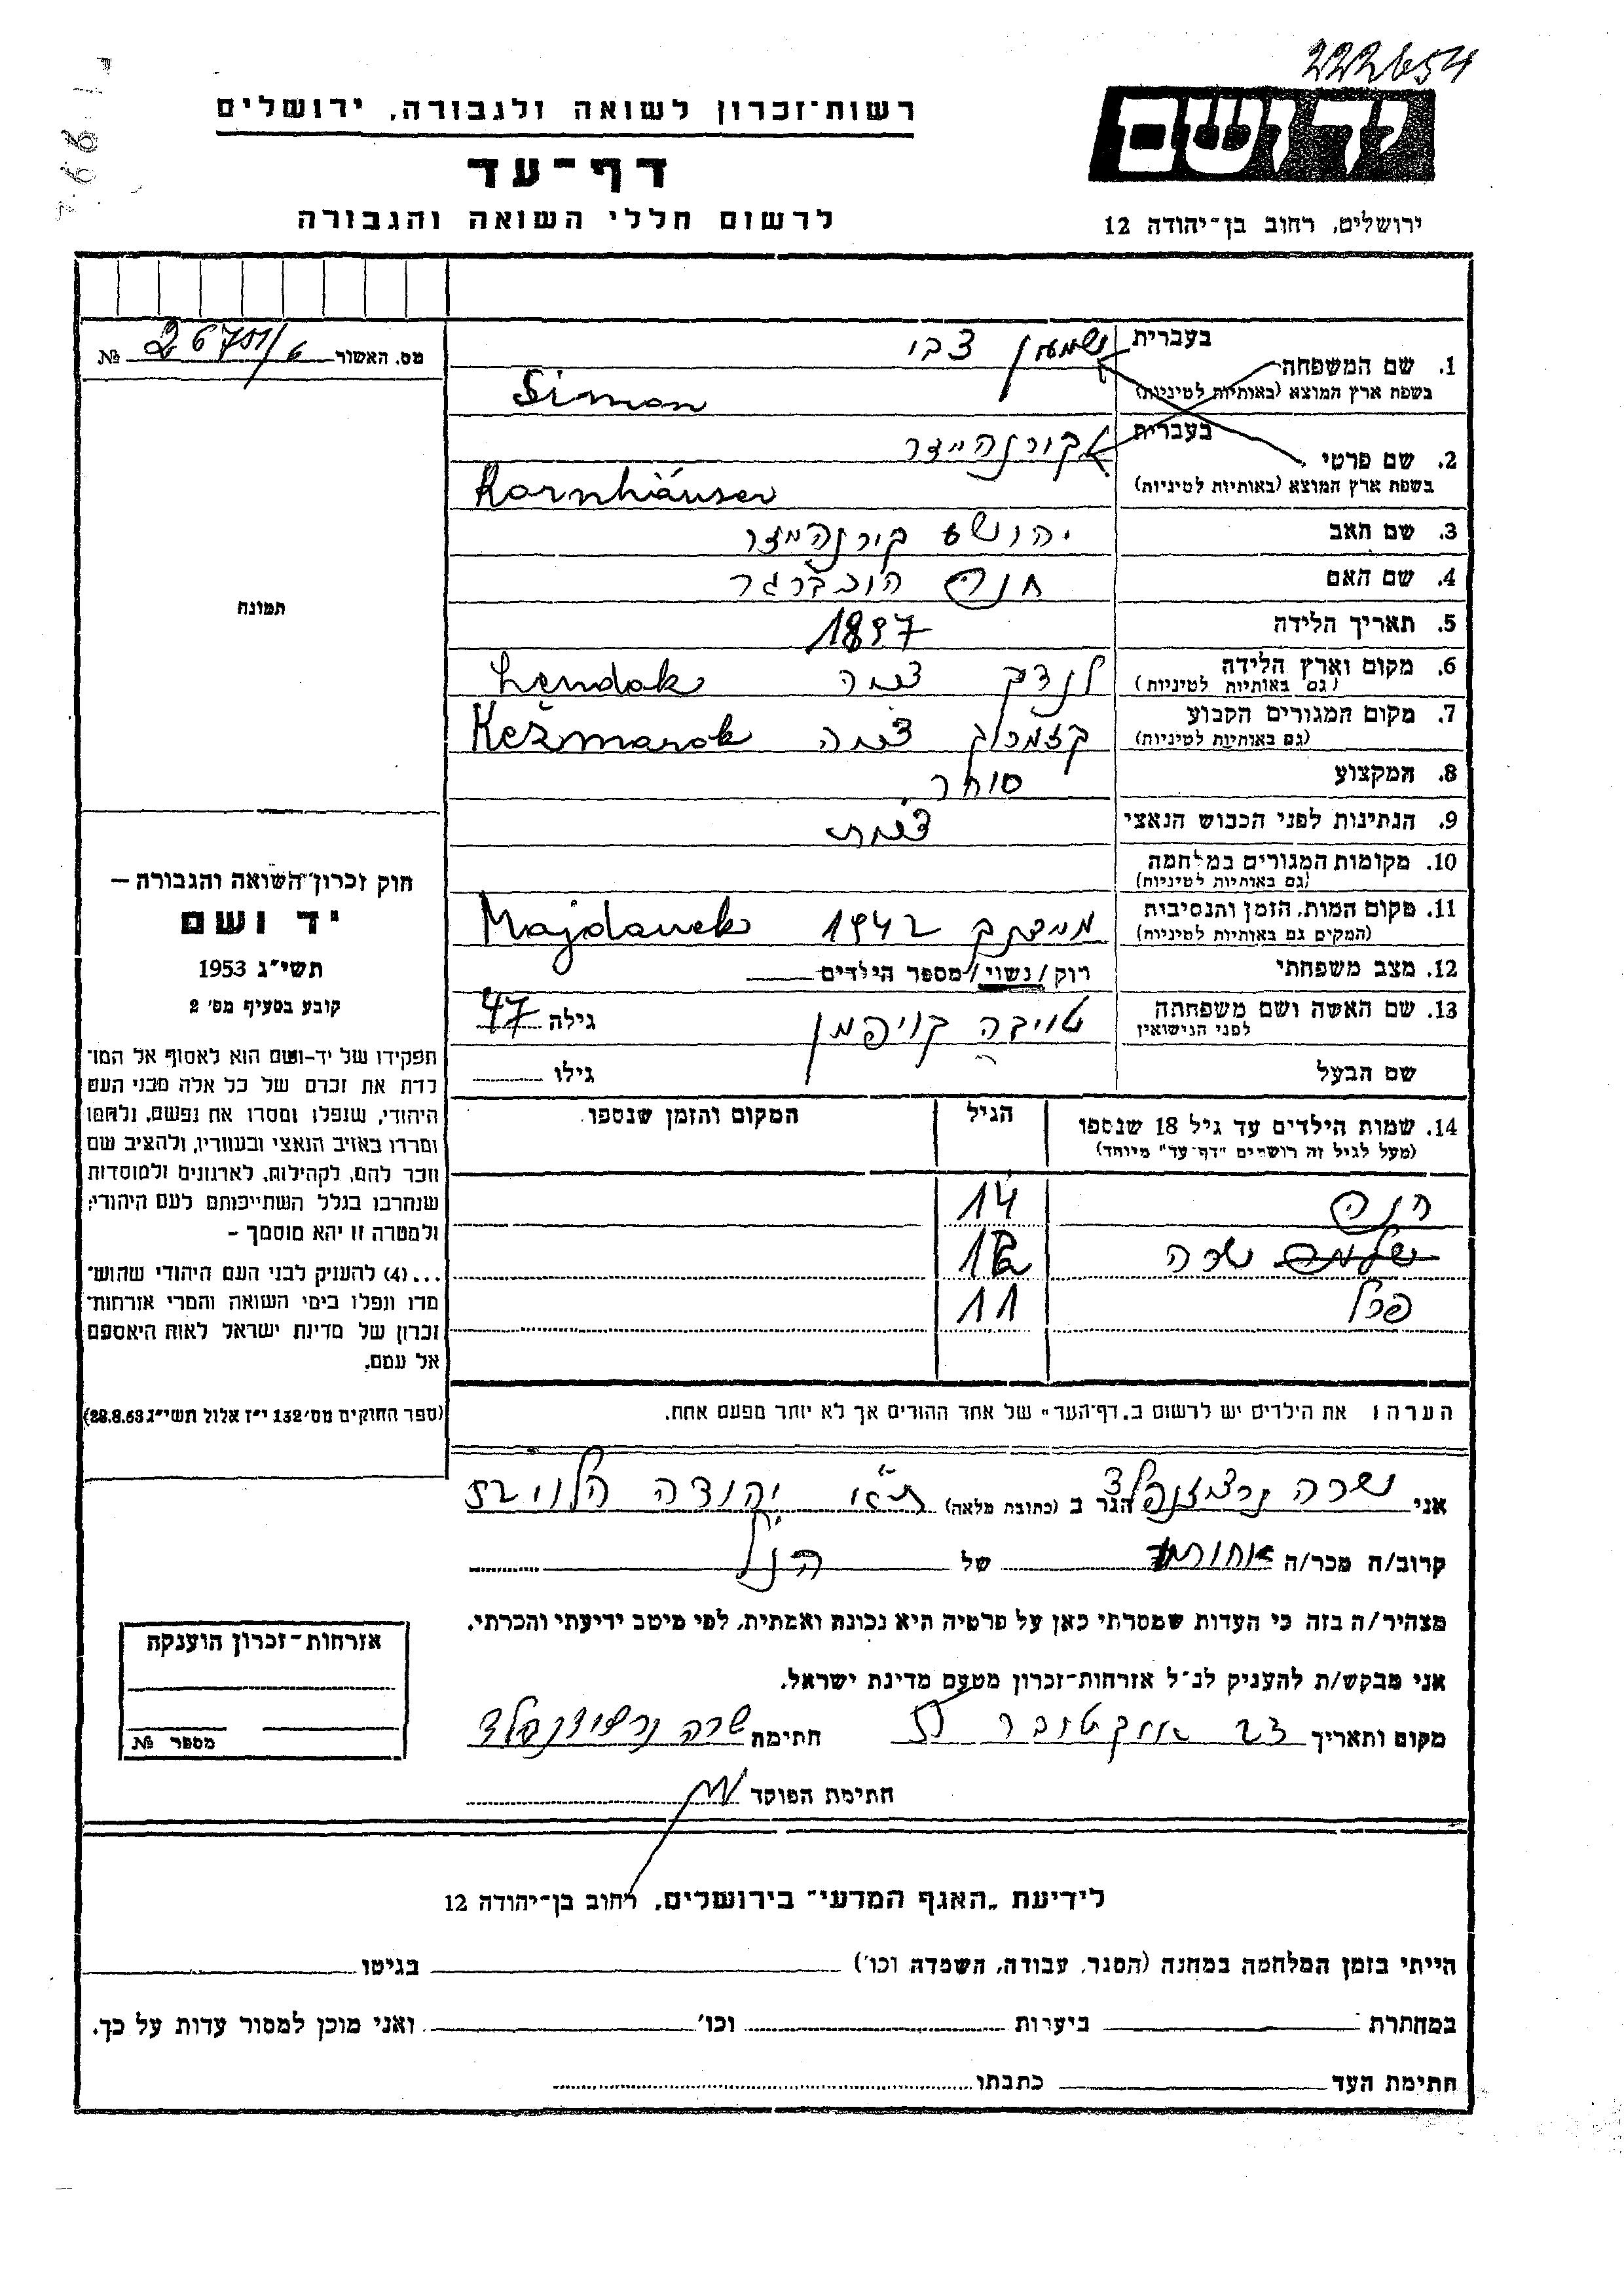 222654
רשות-זכרון לשואה ולגבורה, ירושלים
דף-עד
לרשום חללי השואה והגבורה
יד ושם
ירושלים, רחוב בן-יהודה 12
מס. האשור № 26751/6
1. שם המשפחה בעברית שמעון צבי
בשפת ארץ המוצא (באותיות לטיניות) Simon
2. שם פרטי בעברית קורנהייזר
בשפת ארץ המוצא (באותיות לטיניות) Kornhäuser
3. שם האב יהושע קורנהייזר
4. שם האם חנה הוכברגר
5. תאריך הלידה 1897
6. מקום וארץ הלידה (גם באותיות לטיניות) לנדק Lendak
7. מקום המגורים הקבוע (גם באותיות לטיניות) קזמרוק Kežmarok
8. המקצוע סוחר
9. הנתינות לפני הכבוש הנאצי
10. מקומות המגורים במלחמה (גם באותיות לטיניות)
11. מקום המות, הזמן והנסיבות (המקום גם באותיות לטיניות) מיידנק 1942 Majdanek
12. מצב משפחתי רוק/נשוי/מספר הילדים
13. שם האשה ושם משפחתה לפני הנישואין טויבה קויפמן גילה 47
שם הבעל גילו
14. שמות הילדים עד גיל 18 שנספו הגיל המקום והזמן שנספו
(מעל לגיל זה רושמים "דף-עד" מיוחד)
חנה 14
שרה 12
פרל 11
הערה: את הילדים יש לרשום ב"דף-העד" של אחד ההורים אך לא יותר מפעם אחת.
תמונה
חוק זכרון-השואה והגבורה —
יד ושם
תשי"ג 1953
קובע בסעיף מס' 2
תפקידו של יד-ושם הוא לאסוף אל המו־
לדת את זכרם של כל אלה מבני העם
היהודי, שנפלו ומסרו את נפשם, נלחמו
ומרדו באויב הנאצי ובעוזריו, ולהציב שם
וזכר להם, לקהילות, לארגונים ולמוסדות
שנחרבו בגלל השתייכותם לעם היהודי;
ולמטרה זו יהא מוסמך —
...(4) להעניק לבני העם היהודי שהוש־
מדו ונפלו בימי השואה והמרי אזרחות־
זכרון של מדינת ישראל לאות היאספם
אל עמם.
(ספר החוקים מס' 132 י"ז אלול תשי"ג 28.8.53)
אני שרה הגר ב (כתובת מלאה) ת"א יהודה הלוי
קרוב/ה מכר/ה אחותו של הנ"ל
מצהיר/ה בזה כי העדות שמסרתי כאן על פרטיה היא נכונה ואמתית, לפי מיטב ידיעתי והכרתי.
אני מבקש/ת להעניק לנ"ל אזרחות-זכרון מטעם מדינת ישראל.
מקום ותאריך 23 אוקטובר חתימה שרה
חתימת הפוקד
אזרחות-זכרון הוענקה
מספר №
לידיעת "האגף המדעי" בירושלים, רחוב בן-יהודה 12
הייתי בזמן המלחמה במחנה (הסגר, עבודה, השמדה וכו') בגיטו
במחתרת ביערות וכו' ואני מוכן למסור עדות על כך.
חתימת העד כתבתו